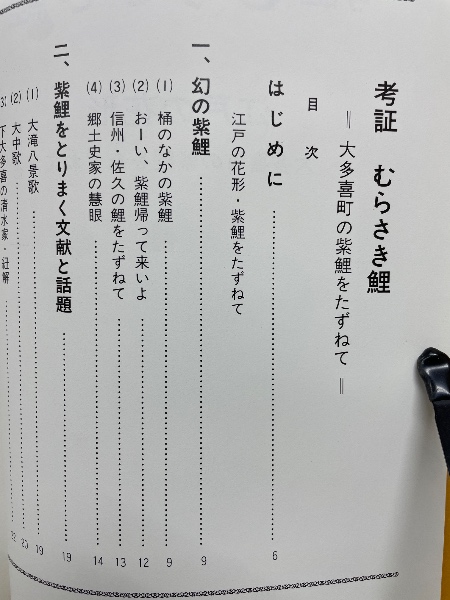 考証 むらさき鯉
＝大多喜町の紫鯉をたずねて＝
目次
はじめに……6
江戸の花形・紫鯉をたずねて
一、幻の紫鯉……9
(1) 桶のなかの紫鯉……9
(2) おーい、紫鯉帰って来いよ……12
(3) 信州・佐久の鯉をたずねて……13
(4) 郷土史家の慧眼……14
二、紫鯉をとりまく文献と話題……19
(1) 大滝八景歌……19
(2) 大中歌……20
下大多喜の清水家・註解……22